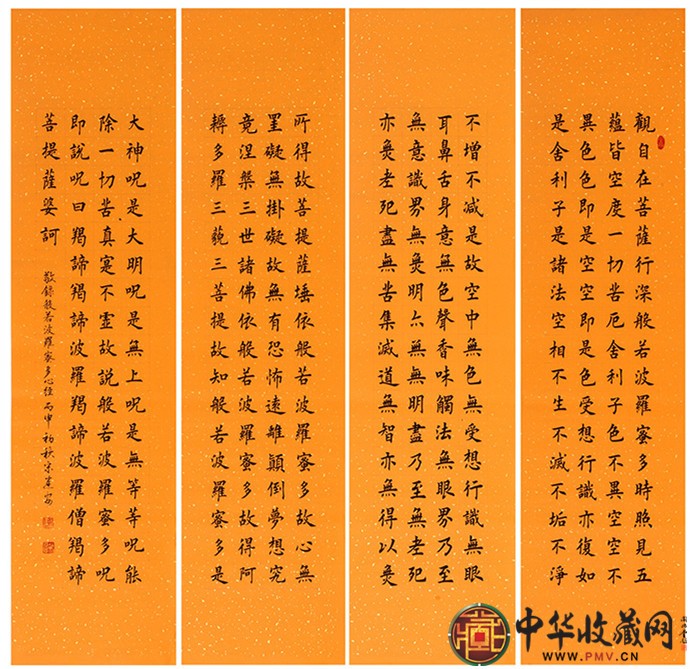 觀自在菩薩行深般若波羅蜜多時照見五
蘊皆空度一切苦厄舍利子色不異空空不
異色色即是空空即是色受想行識亦復如
是舍利子是諸法空相不生不滅不垢不淨
不增不減是故空中無色無受想行識無眼
耳鼻舌身意無色聲香味觸法無眼界乃至
無意識界無無明亦無無明盡乃至無老死
亦無老死盡無苦集滅道無智亦無得以無
所得故菩提薩埵依般若波羅蜜多故心無
罣礙無掛礙故無有恐怖遠離顛倒夢想究
竟涅槃三世諸佛依般若波羅蜜多故得阿
耨多羅三藐三菩提故知般若波羅蜜多是
大神呪是大明呪是無上呪是無等等呪能
除一切苦真寔不虛故說般若波羅蜜多呪
即說呪曰羯諦羯諦波羅羯諦波羅僧羯諦
菩提薩婆訶
敬錄般若波羅蜜多心經 丙申初秋宋
中华收藏网
WWW.PMV.CN